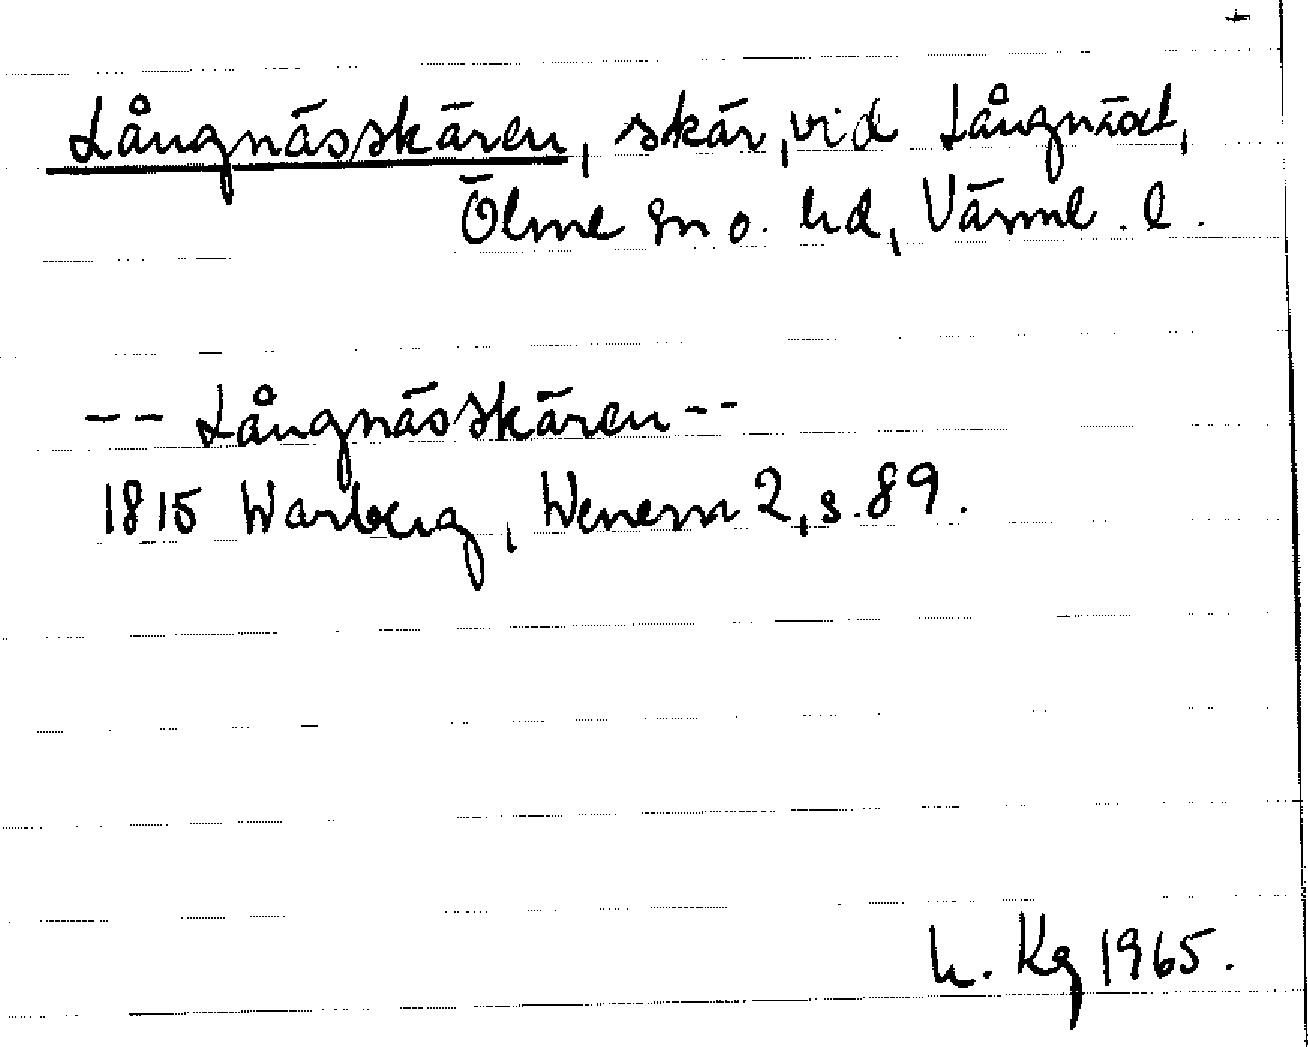 +
Långnässkären, skär, vid Långnäset,
Ölme sn o. hd, Värml. l.
-- Långnässkären --
1815 Warberg, Wenern 2, s. 89.
h. Kg 1965.